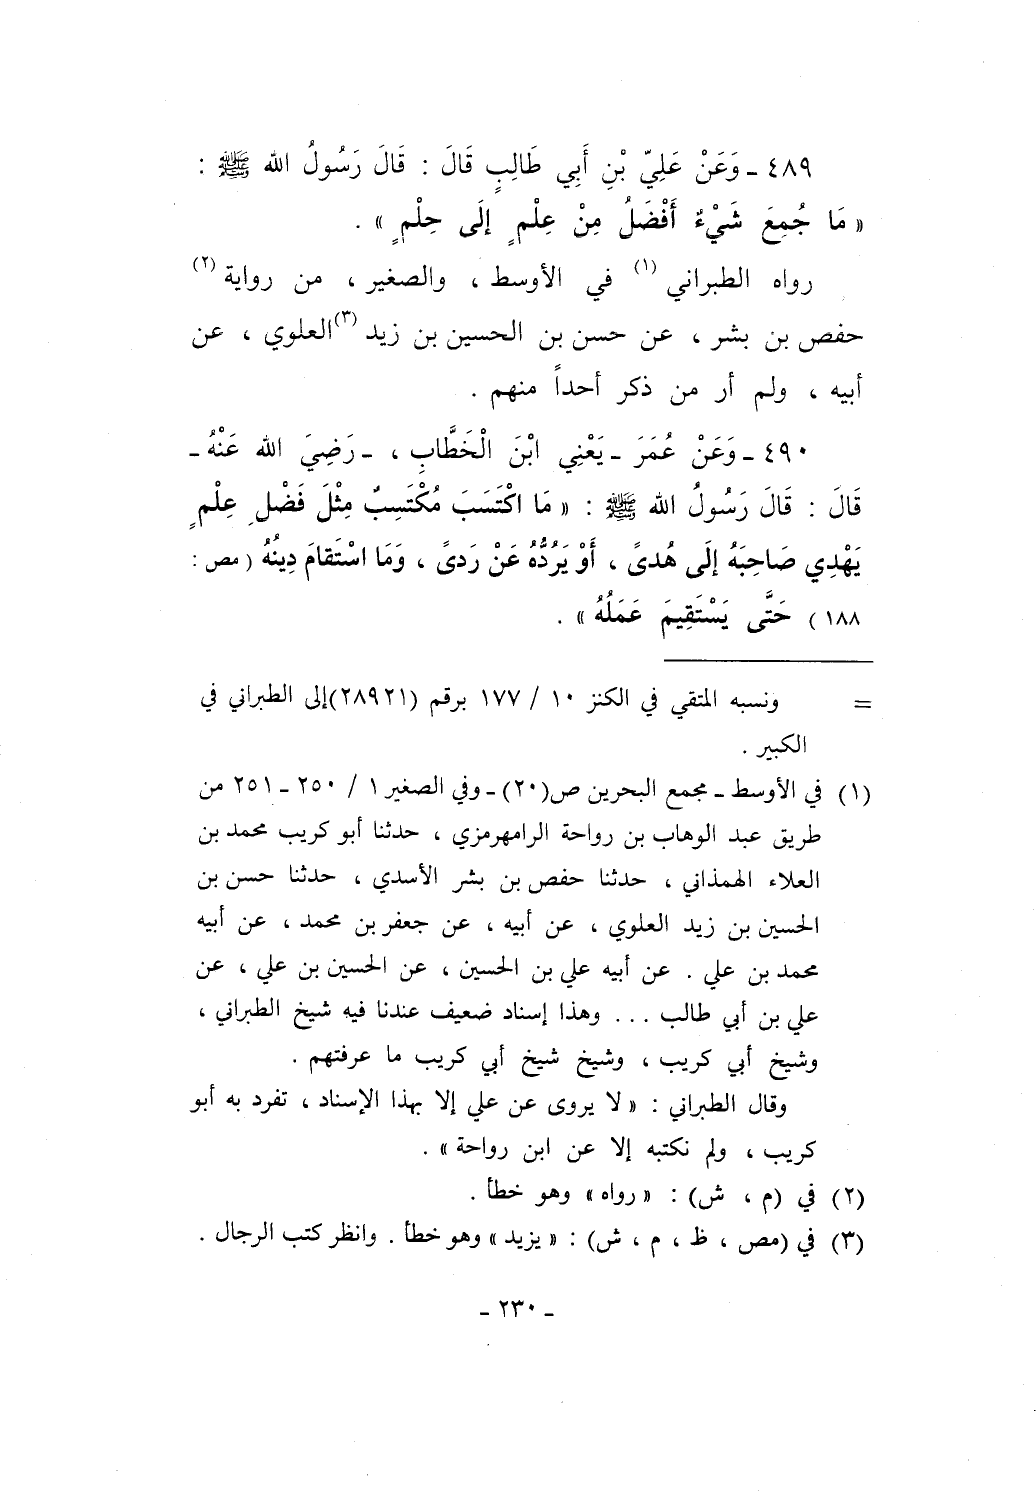 ٤٨٩ ـ وَعَنْ عَلِيِّ بْنِ أَبِي طَالِبٍ قَالَ : قَالَ رَسُولُ الله ﷺ :
« مَا جُمِعَ شَيْءٌ أَفْضَلُ مِنْ عِلْمٍ إِلَى حِلْمٍ » .
رواه الطبراني (١) في الأوسط ، والصغير ، من رواية (٢)
حفص بن بشر ، عن حسن بن الحسين بن زيد (٣) العلوي ، عن
أبيه ، ولم أر من ذكر أحداً منهم .
٤٩٠ ـ وَعَنْ عُمَرَ ـ يَعْنِي ابْنَ الْخَطَّابِ ، ـ رَضِيَ الله عَنْهُ ـ
قَالَ : قَالَ رَسُولُ الله ﷺ : « مَا اكْتَسَبَ مُكْتَسِبٌ مِثْلَ فَضْلِ عِلْمٍ
يَهْدِي صَاحِبَهُ إِلَى هُدىً ، أَوْ يَرُدُّهُ عَنْ رَدىً ، وَمَا اسْتَقَامَ دِينُهُ ( مص :
١٨٨ ) حَتَّى يَسْتَقِيمَ عَمَلُهُ » .
= ونسبه المتقي في الكنز ١٠ / ١٧٧ برقم (٢٨٩٢١) إلى الطبراني في
الكبير .
(١) في الأوسط ـ مجمع البحرين ص (٢٠) ـ وفي الصغير ١ / ٢٥٠ ـ ٢٥١ من
طريق عبد الوهاب بن رواحة الرامهرمزي ، حدثنا أبو كريب محمد بن
العلاء الهمذاني ، حدثنا حفص بن بشر الأسدي ، حدثنا حسن بن
الحسين بن زيد العلوي ، عن أبيه ، عن جعفر بن محمد ، عن أبيه
محمد بن علي . عن أبيه علي بن الحسين ، عن الحسين بن علي ، عن
علي بن أبي طالب ... وهذا إسناد ضعيف عندنا فيه شيخ الطبراني ،
وشيخ أبي كريب ، وشيخ شيخ أبي كريب ما عرفتهم .
وقال الطبراني : « لا يروى عن علي إلا بهذا الإسناد ، تفرد به أبو
كريب ، ولم نكتبه إلا عن ابن رواحة » .
(٢) في (م ، ش) : « رواه » وهو خطأ .
(٣) في (مص ، ظ ، م ، ش) : « يزيد » وهو خطأ . وانظر كتب الرجال .
ـ ٢٣٠ ـ